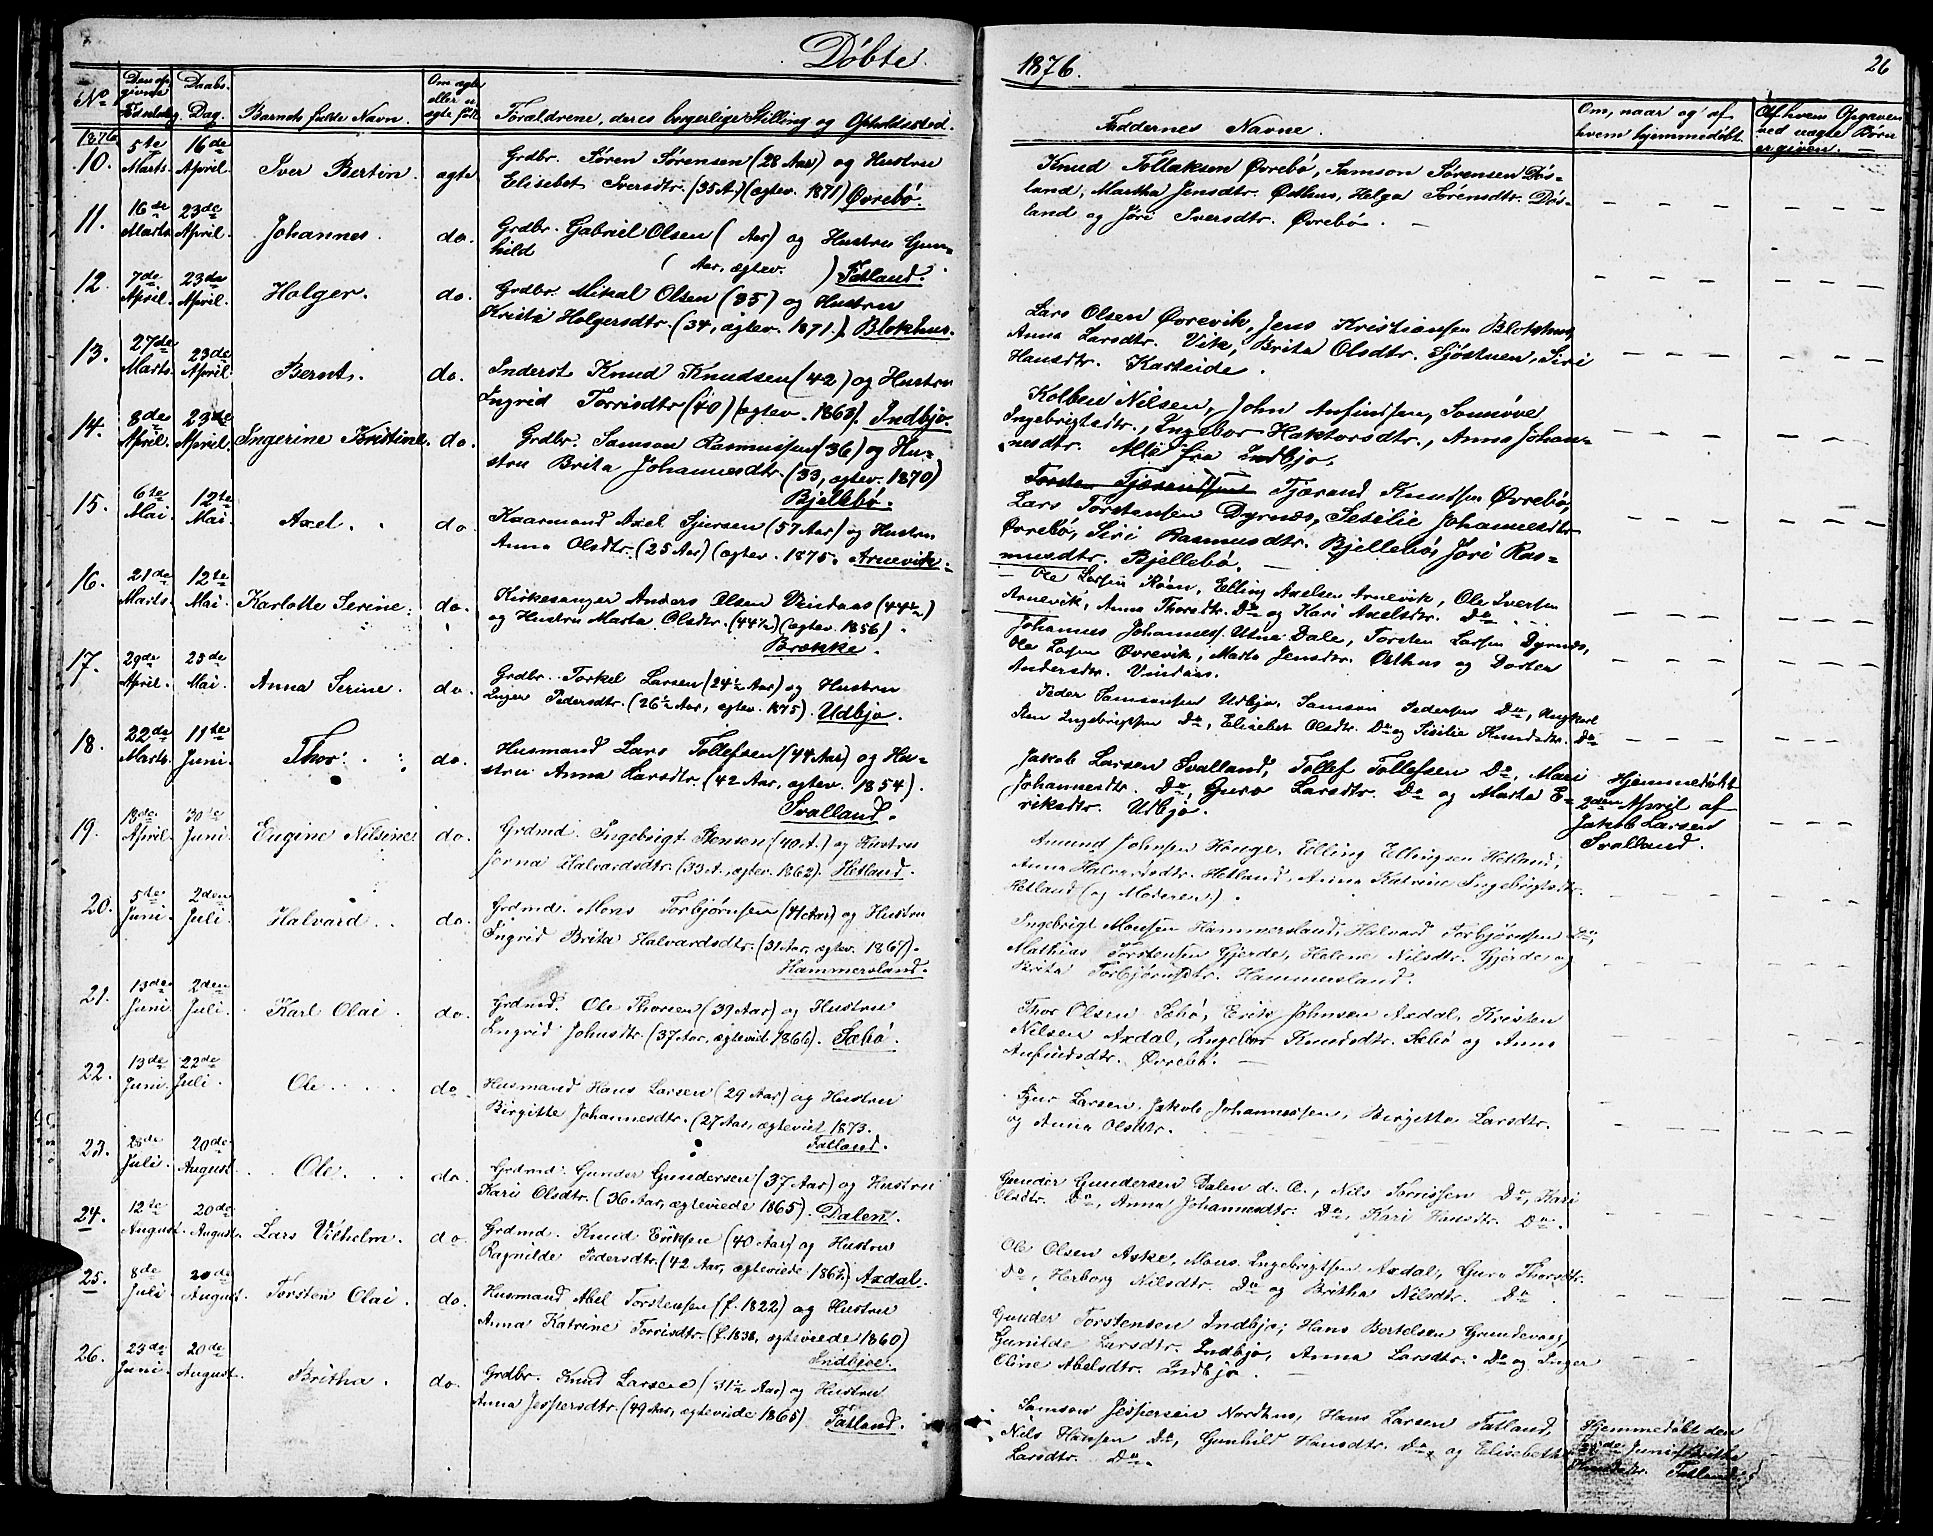 Döbte.
No
Den opgivne Fødselsdag.
Daabs-Dag.
Barnets fulde Navn.
Om ægte eller uægte født.
Forældrene, deres borgerlige Stilling og Opholdssted.
1876
10. 5te Marts 16de April. Iver Bertin. ægte Grdbr. Søren Sørensen (28 Aar) og Hustru
Elisebet Iversdtr. (35 A.) (ægtev. 1871) Øvrebö.
11. 16de Marts 23de April. Johannes. do. Grdbr. Gabriel Olsen ( Aar) og Hustru Gun-
hild ( Aar, ægtev. ) Fatland.
12. 7de April. 23de April. Holger. do. Grdbr. Mikal Olsen (35) og Hustru
Kristi Holgersdtr. (34, ægtev. 1871.) Blokhus.
13. 27de Marts 23de April. Bernt. do. Inderst Knud Knudsen (42) og Hustru
Ingrid Torrisdtr (40) (ægtev. 1863). Indbjo.
14. 8de April. 23de April. Ingerine Kristine. do. Grdbr. Samson Rasmussen (36) og Hu-
stru Brita Johannesdtr. (33, ægtev. 1870)
Bjellebö.
15. 6te Mai 12te Mai. Axel. do. Kaarmand Axel Sjursen (57 Aar) og Hustru
Anna Olsdtr. (25 Aar) (ægtev. 1875. Arnevik.
16. 21de Marts. 12te Mai. Karlotte Serine. do. Kirkesanger Anders Olsen Vindaas (44½)
og Hustru Marta Olsdtr. (44½) (ægtev. 1856).
Brække.
17. 29de April. 25de Mai. Anna Serine. do. Grdbr. Torkel Larsen (24½ Aar) og Hustru
Inger Pedersdtr. (26½ Aar, ægtev. 1875). Udbjo.
18. 22de Marts. 11te Juni. Thor. do. Husmand Lars Tollefsen (44 Aar) og Hu-
stru Anna Larsdtr. (42 Aar, ægtev. 1854).
Svalland.
19. 13de April. Juni. Eugine Nilsine do. Grdmd. Ingebrigt Stensen (40 A.) og Hustru
Jorna Halvardsdtr. (33 A., ægtev. 1862). Hetland.
20. 5te Juni. 2den Juli. Halvard. do. Grdmd. Mons Torbjørnsen (41 Aar) og Hustru
Ingrid Brita Halvardsdtr. (31 Aar, ægtev. 1867).
Hammersland.
21. 13de Juni 2den Juli. Karl Olai. do. Grdmd. Ole Thorsen (39 Aar) og Hustru
Ingrid Johnsdtr. (37 Aar, ægteviet 1866). Sæbö.
22. 13de Juni. 22de Juli. Ole. do. Husmand Hans Larsen (29 Aar) og Hustru
Birgitte Johannesdtr. (27 Aar, ægteviet 1873.
Fatland.
23. 25de Juli. 20de August. Ole. do. Grdmd. Gunder Gundersen (37 Aar) og Hustru
Kari Olsdtr. (36 Aar, ægteviede 1865). Dalen.
24. 12te August. 20de August. Lars Vilhelm. do. Grdmd. Knud Eriksen (40 Aar) og Hustru
Ragnilde Pedersdtr. (42 Aar, ægteviede 1862) Axdal.
25. 8de Juli. 20de August. Torsten Olai. do. Husmand Abel Torstensen (f. 1822) og Hustru
Anna Katrine Torrisdtr. (f. 1838, ægteviede 1860)
Indbjoe.
26. 23de Juni. 20de August. Britha. do. Grdbr. Knud Larsen (31½ Aar) og Hustru
Anna Jespersdtr. (49 Aar, ægteviede 1865). Fatland.
1876.
26
Faddernes Navne.
Om, naar og af hvem hjemmedøbt.
Af hvem Opgaven ved uægte Børn er given.
Knud Tollaksen Øvrebö, Samson Sørensen Døs-
land, Martha Jensdtr. Østhus, Helga Sørensdtr. Døs-
land og Jöri Iversdtr. Øvrebö.
Lars Olsen Øvrevik, Jens Kristiansen Blokhus,
Anna Larsdtr. Vik, Brita Olsdtr. Sjöstuen, Siri
Hansdtr. Karteide.
Kolben Nilsen, John Anfindsen,
Ingebrigtsdtr., Ingebor Haktorsdtr., Anna Johan-
nesdtr. Alle fra Indbjo.
Tjærand Knudsen Øvrebö,
Lars Torstensen Dyrnæs, Sesilie Johannesdtr
Øvrebö, Siri Rasmusdtr. Bjellebö, Jöri Ras-
musdtr. Bjellebö.
Ole Larsen Röen, Elling Axelsen Arnevik, Ole Iversen
Arnevik, Anna Thorsdtr. Do og Kari Axelsdtr. Do
Johannes Johannes. Utne Dale, Torsten Larsen Dyrnæs,
Ole Larsen Øvrevik, Marta Jensdtr. Østhus og Dorter
Andersdtr. Vindaas.
Peder Samsonsen Udbjo, Samson Pedersen Do, Ungkarl
Sten Ingebrigtsen Do, Elisebet Olsdtr. Do og Sisilie Knudsdtr. Do
Jakob Larsen Svalland, Tollef Tollefsen Do, Mari
Johannesdtr. Do, Guro Larsdtr. Do og Marta E-
riksdtr. Udbjo.
Hjemmedøbt
2den April af
Jakob Larsen
Svalland.
Amund Johnsen Hauge, Elling Ellingsen Hetland,
Anna Halvardsdtr. Hetland, Anna Katrine Ingebrigtsdtr.
Hetland (og Moderen).
Ingebrigt Monsen Hammersland, Halvard Torbjørnsen Do,
Mathias Torstensen Gjerde, Helene Nilsdtr. Gjerde og
Brita Torbjørnsdtr. Hammersland.
Thor Olsen Sæbö, Erik Johnsen Axdal, Kristen
Nilsen Axdal, Ingebor Knudsdtr. Sæbö og Anna
Anfindsdtr. Øvrebö.
Sjur Larsen, Jakob Johannessen, Birgitte Larsdtr.
og Anna Olsdtr.
Gunder Gundersen Dalen d. Æ., Nils Torrissen Do, Kari
Olsdtr. Do, Anna Johannesdtr. Do, Kari Hansdtr. Do.
Ole Olsen Aske, Mons Ingebrigtsen Axdal, Guro Thorsdtr.
Do, Herborg Nilsdtr. Do og Britha Nilsdtr. Do
Gunder Torstensen Indbjo, Hans Bertelsen Grundevaag,
Gunilde Larsdtr. Indbjo, Anna Larsdtr. Do og Inger
Oline Abelsdtr. Indbjo.
Samson Jespersen Nordhus, Hans Larsen Fatland,
Nils Hansen Do, Gunhild Hansdtr. Do og Elisebeth
Larsdtr. Do.
Hjemmedøbt den
Juni Britha
Fatland